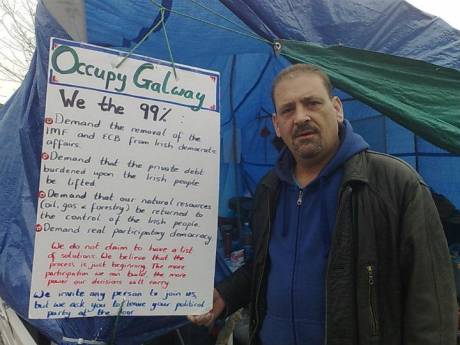 Occupy Galway
We the 99%:
Demand the removal of the
IMF and ECB from Irish democratic
affairs.
Demand that the private debt
burdened upon the Irish people
be lifted
Demand that our natural resources
(oil, gas & forestry) be returned to
the control of the Irish people.
Demand real participatory democracy
We do not claim to have a list
of solutions. We believe that the
process is just beginning. The more
participation we can build, the more
power our decisions will carry
We invite any person to join us,
but we ask you to leave your political
party at the door